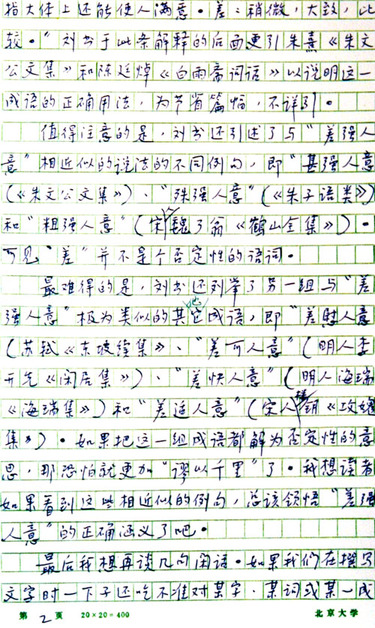 指大体上还能使人满意。差：稍微，大致，比
较。”刘书于此条解释的后面更引朱熹《朱文
公文集》和陈廷焯《白雨斋词话》以说明这一
成语的正确用法，为节省篇幅，不详引。
值得注意的是，刘书还引述了与“差强人
意”相近似的说法的不同例句，即“甚强人意”
（《朱文公文集》）、“殊强人意”（《朱子语类》）
和“粗强人意”（宋魏了翁《鹤山全集》）。
可见“差”并不是个否定性的语词。
最难得的是，刘书还列举了另一组与“差
强人意”极为类似的其它成语，即“差慰人意”
（苏轼《东坡续集》、“差可人意”（明人李
开先《闲居集》）、“差快人意”（明人海瑞
《海瑞集》）和“差适人意”（宋人楼钥《攻媿
集》）。如果把这一组成语都解为否定性的意
思，那恐怕就更加“谬以千里”了。我想读者
如果看到这些相近似的例句，总该领悟“差强
人意”的正确涵义了吧。
最后我想再谈几句闲话。如果我们在撰写
文字时一下子还吃不准对某字、某词或某一成
第 2 页 20×20=400 北京大学